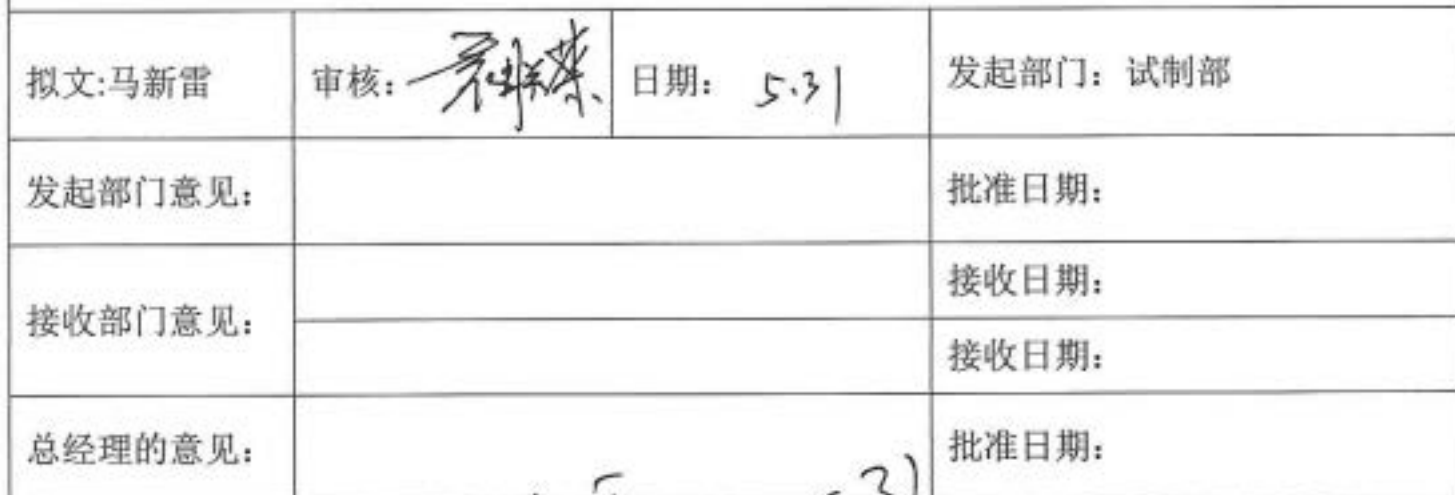 拟文:马新雷 审核: 日期: 5.31 发起部门: 试制部
发起部门意见: 批准日期:
接收部门意见: 接收日期:
接收日期:
总经理的意见: 批准日期: